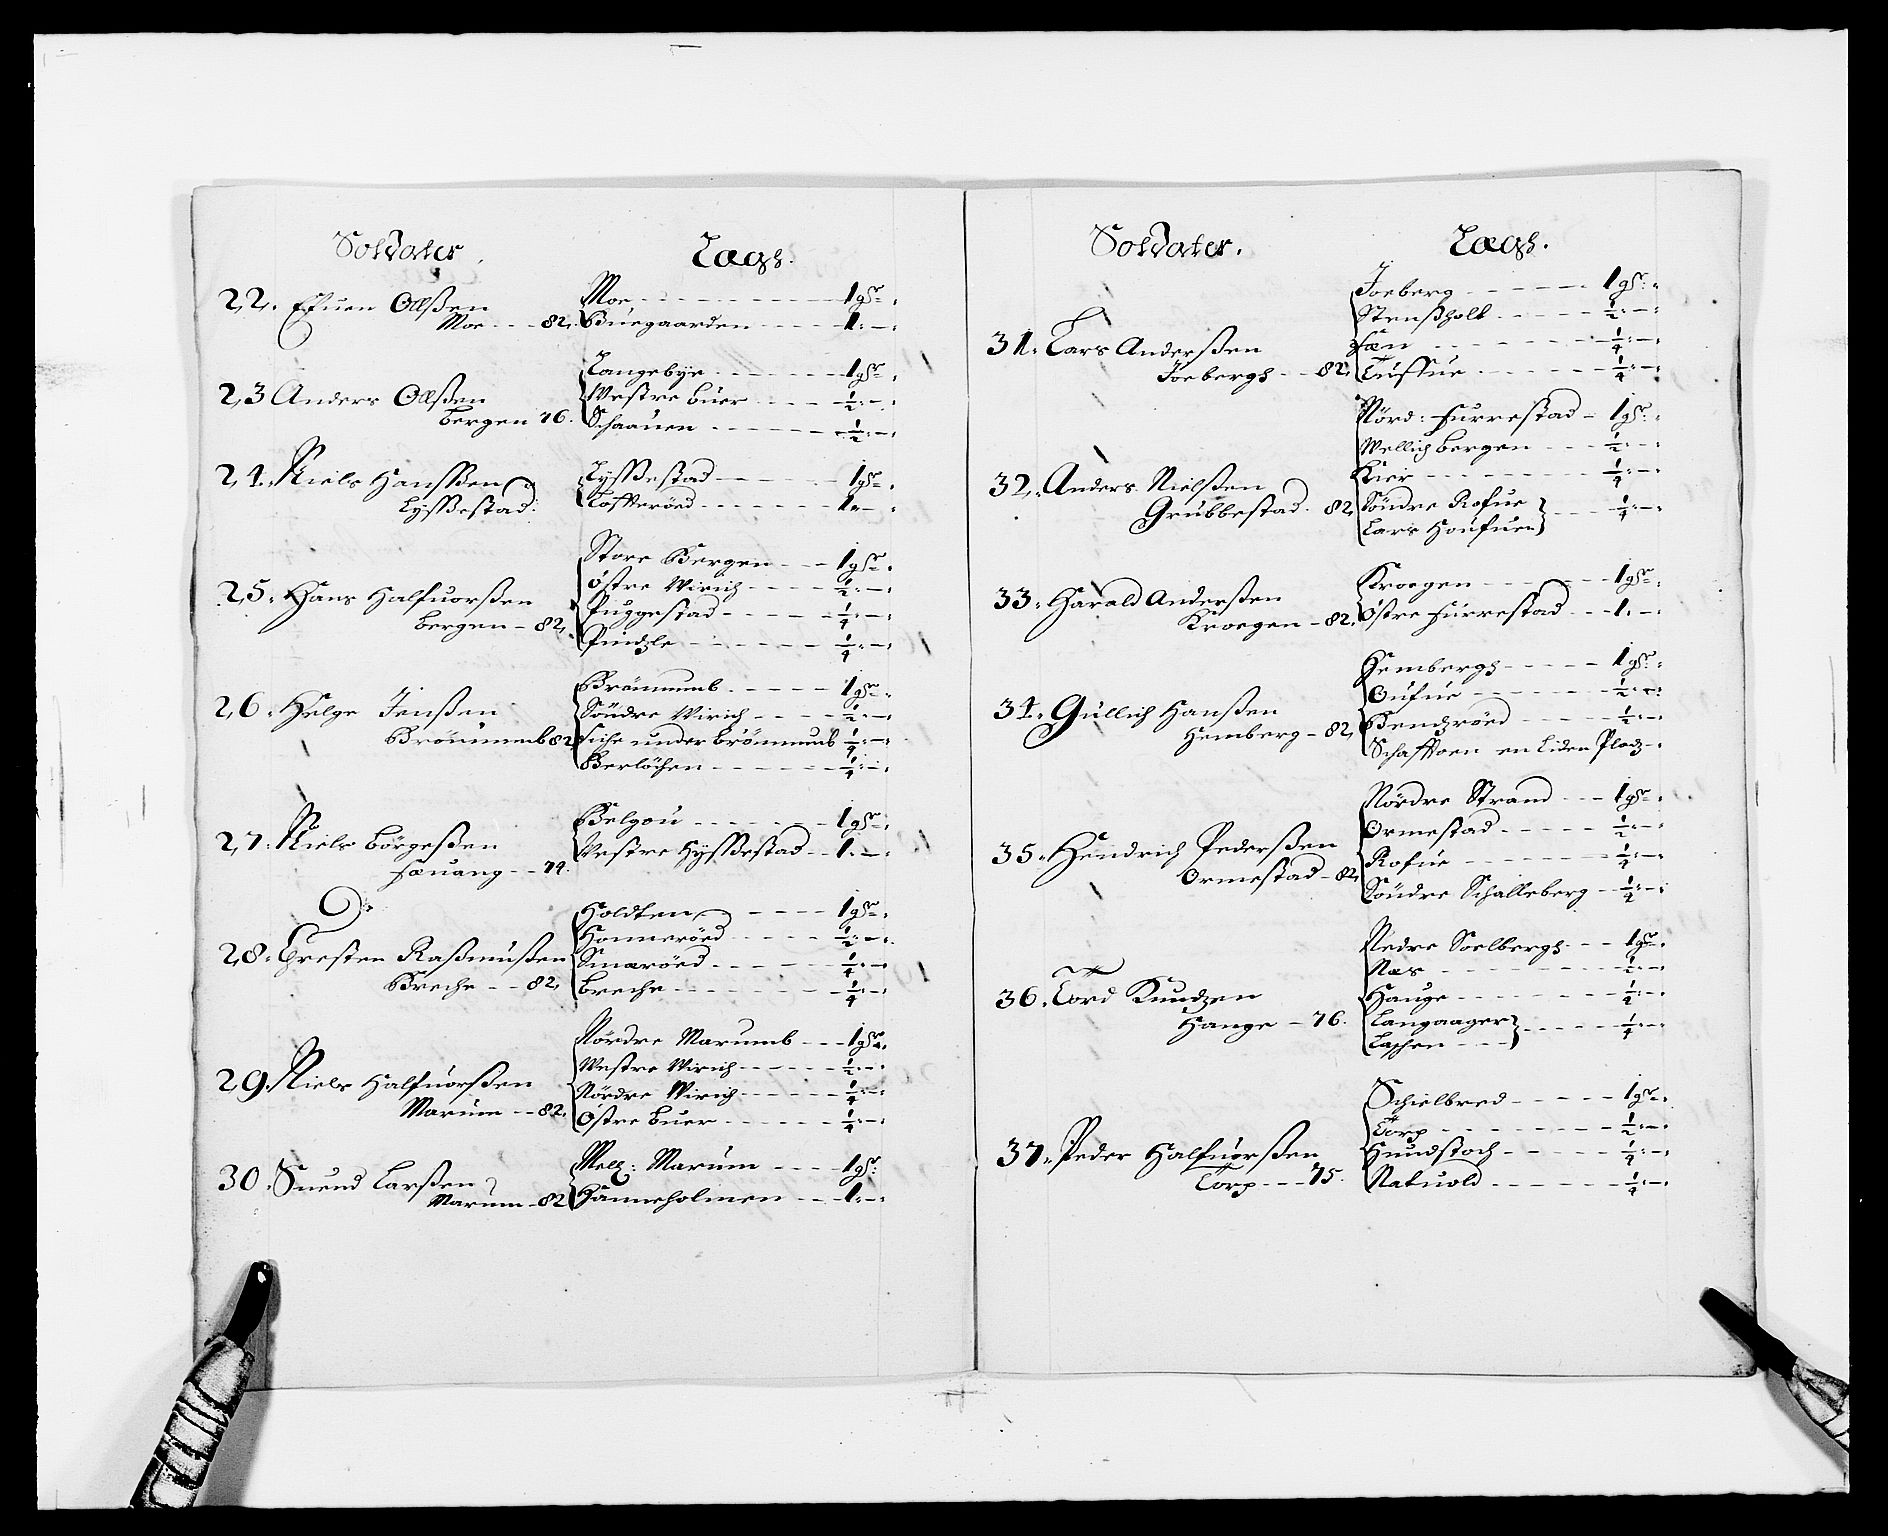 Soldater.
Lægh.
22. Efuen Olßen
Moe - - - 82.
Moe - - - 1 gr
Buegaarden - - - 1. -
23 Anders Olßen
Bergen 76.
Langebye - - - 1 gr
Westre Buer - - - ½. -
Schaauen - - - ½. -
24. Niels Hansßen
Lysßestad.
Lysßestad - - - 1 gr
Tofteröed - - - 1. -
25. Hans Halfuorßen
Bergen - 82.
Store Bergen - - - 1 gr
Östre Wirich - - - ½. -
Puggestad - - - ¼. -
Pindzle - - - ¼. -
26. Helge Jenßen
Brönnumb 82
Brönnumb - - - 1 gr
Söndre Wirich - - - ½. -
under Brönnumb ¼. -
Berlöchen - - - ¼. -
27. Niels Börgeßen
Fæuang - - 79.
Belgou - - - 1 gr
Vestre Hysßestad - - 1. -
28. Christen Raßmußen
Breche - - 82.
Holdten - - - 1 gr
Honneröed - - - ½. -
Smaröed - - - ¼. -
Breche - - - ¼. -
29. Niels Halfuorßen
Marum - - 82.
Nördre Marumb - - - 1 gr
Westre Wirich - - - ½. -
Nördre Wirich - - - ¼. -
Östre Buer - - - ¼. -
30. Suend Larßen
Marum - 82
Mell: Marum - - - 1 gr
Hanneholmen - - - 1. -
Soldater.
Lægh.
31. Lars Anderßen
Joebergh - - 82.
Joeberg - - - 1 gr
Stenßholt - - - ½. -
Fæn - - - ¼. -
Tuffue - - - ¼. -
32. Anders Nielßen
Grubbestad. 82
Nörd: Furrestad - 1 gr
Mellich Bergen - - - ½. -
Kier - - - ¼. -
Söndre Rofue
Lars Houfuen - - - ¼. -
33. Harald Anderßen
Kroegen - 82.
Kroegen - - - 1 gr
Östre Furrestad - - - 1. -
34. Gullich Hanßen
Hemberg - 82.
Hembergh - - - 1 gr
Oufue - - - ½. -
Bendzröed - - - ½. -
Schaffoen en Liden Pladz -
35. Hendrich Pederßen
Ormestad - 82
Nördre Strand - - - 1 gr
Ormestad - - - ½. -
Rofue - - - ¼. -
Söndre Schalleberg - - ¼. -
36. Tord Knudzen
Hauge - 76.
Nedre Soelbergh - - - 1 gr
Næs - - - ½. -
Hauge - - - ¼. -
Langaager
- - - ¼. -
37. Peder Halfuorßen
Torp - - - 75.
Schielbred - - - 1 gr
Torp - - - ½. -
Hundstoch - - - ¼. -
Natuold - - - ¼. -